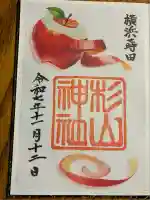 横浜蒔田
杉山
神社
令和七年十一月十二日